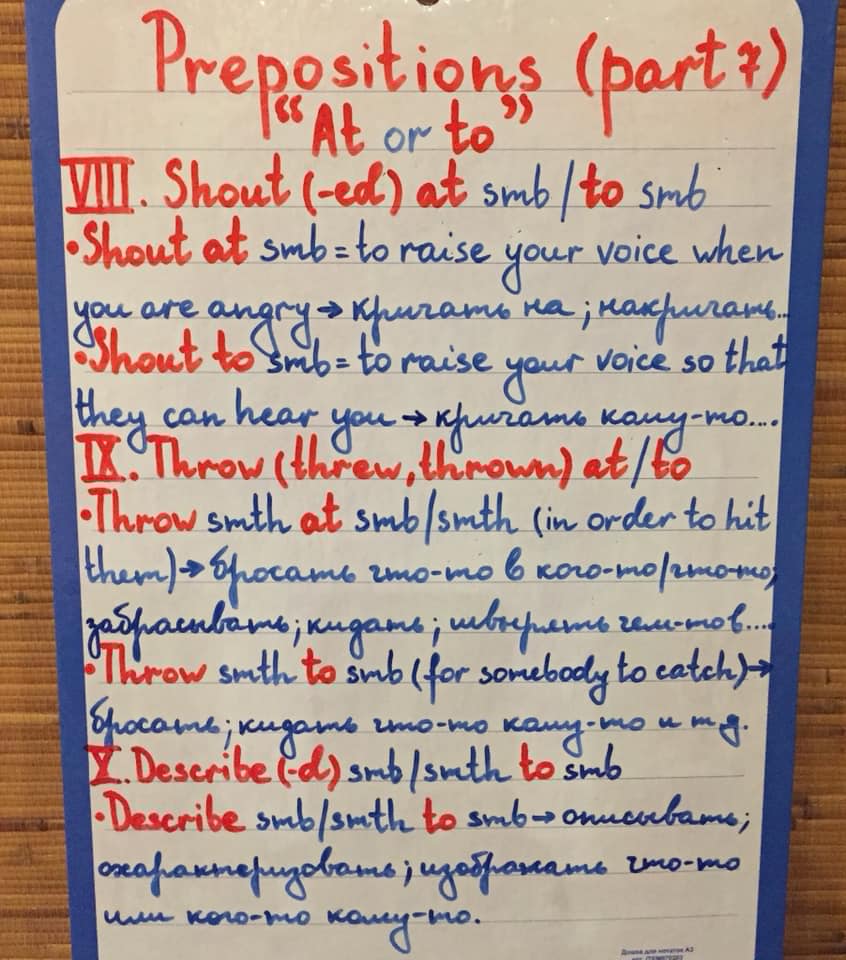 Prepositions (part 7)
“At or to”
VIII. Shout (-ed) at smb/to smb
•Shout at smb = to raise your voice when
you are angry → кричать на; накричать...
•Shout to smb = to raise your voice so that
they can hear you → кричать кому-то....
IX. Throw (threw, thrown) at/to
•Throw smth at smb/smth (in order to hit
them) → бросать что-то в кого-то/что-то;
забрасывать; кидать; швырять чем-то в....
•Throw smth to smb (for somebody to catch) →
бросать; кидать что-то кому-то и т д.
X. Describe (-d) smb/smth to smb
•Describe smb/smth to smb → описывать;
охарактеризовать; изображать что-то
или кого-то кому-то.
Доска для заметок А3